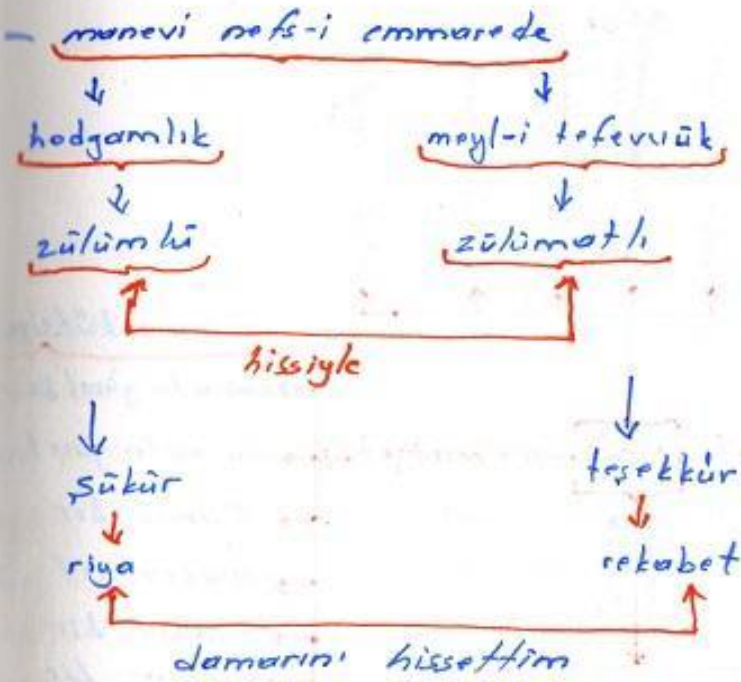 - manevi nefs-i emmarede
hodgamlık meyl-i tefevvük
zülümlü zülümatlı
hissiyle
şükür teşekkür
riya rekabet
damarını hissettim